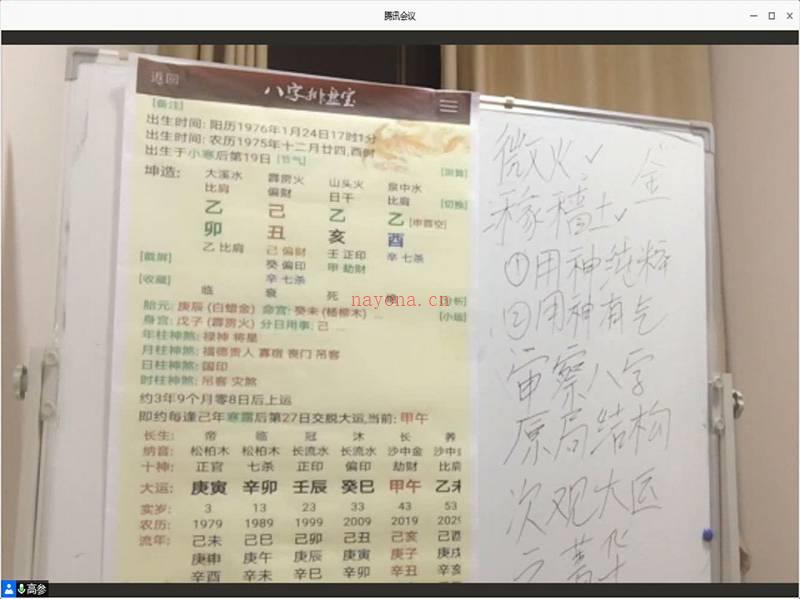 腾讯会议
返回 八字排盘宝
[备注]
出生时间: 阳历1976年1月24日17时1分
出生时间: 农历1975年十二月廿四,酉时
出生于小寒后第19日 [节气]
坤造: 大溪水 霹雳火 山头火 泉中水
比肩 偏财 日干 比肩 [切换]
乙 己 乙 乙 [申酉空]
卯 丑 亥 酉
乙 比肩 己 偏财 壬 正印 辛 七杀
[截屏] 癸 偏印 甲 劫财
[收藏] 辛 七杀
临 衰 死
nayona.cn
胎元: 庚辰 (白蜡金) 命宫: 癸未 (杨柳木) [小运]
身宫: 戊子 (霹雳火) 分日用事: 己 ...
年柱神煞: 禄神 将星
月柱神煞: 福德贵人 寡宿 丧门 吊客
日柱神煞: 国印
时柱神煞: 吊客 灾煞
约3年9个月零8日后上运
即约每逢己年寒露后第27日交脱大运,当前: 甲午
长生: 帝 临 冠 沐 长 养
纳音: 松柏木 松柏木 长流水 长流水 沙中金 沙中
十神: 正官 七杀 正印 偏印 劫财 比肩
大运: 庚寅 辛卯 壬辰 癸巳 甲午 乙未
实岁: 3 13 23 33 43 53
农历: 1979 1989 1999 2009 2019 2029
流年: 己未 己巳 己卯 己丑 己亥 己酉
庚申 庚午 庚辰 庚寅 庚子 庚戌
辛酉 辛未 辛巳 辛卯 辛丑 辛亥
微火✓
稼穑土✓ 金
①用神纯粹
②用神有气
审察八字
原局结构
次观大运
高参